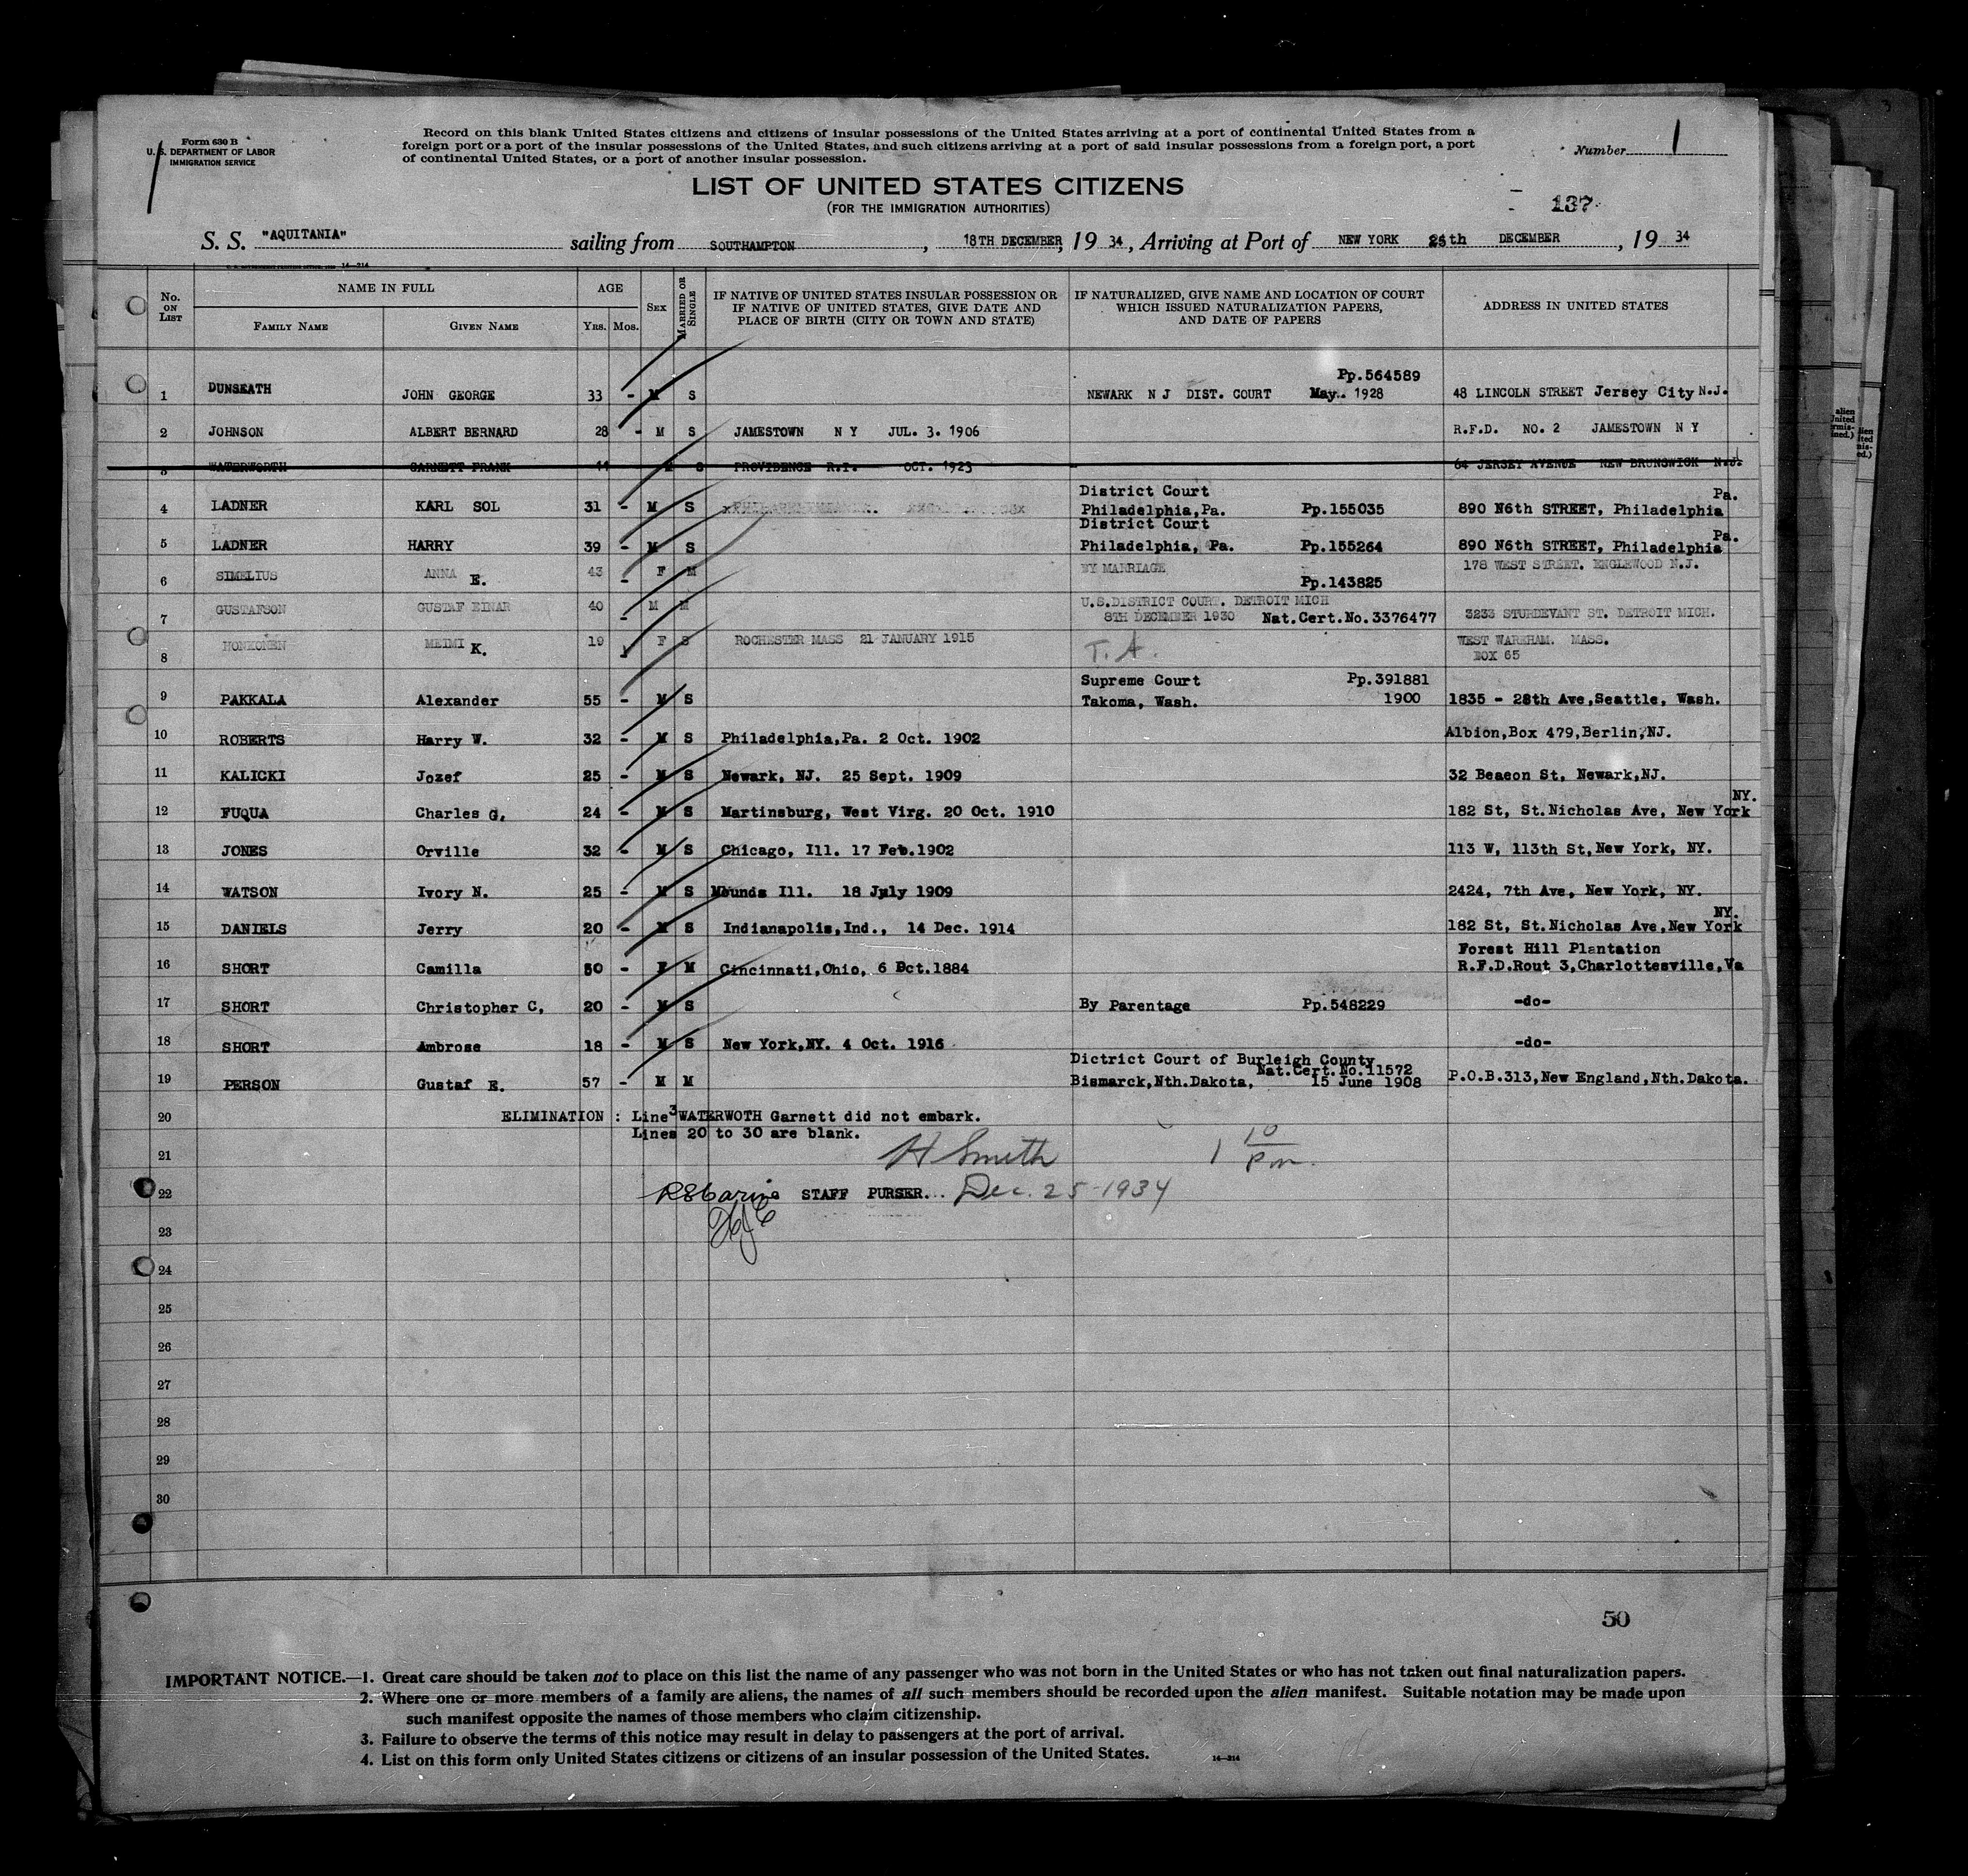 Form 630 B
U. S. DEPARTMENT OF LABOR
IMMIGRATION SERVICE
Record on this blank United States citizens and citizens of insular possessions of the United States arriving at a port of continental United States from a
foreign port or a port of the insular possessions of the United States, and such citizens arriving at a port of said insular possessions from a foreign port, a port
of continental United States, or a port of another insular possession.
Number 1
LIST OF UNITED STATES CITIZENS
(FOR THE IMMIGRATION AUTHORITIES)
137
S. S. "AQUITANIA" sailing from SOUTHAMPTON, 18TH DECEMBER, 19 34, Arriving at Port of NEW YORK 25th DECEMBER, 19 34
14—214
No. ON LIST
NAME IN FULL
FAMILY NAME
GIVEN NAME
AGE
YRS. MOS.
SEX
MARRIED OR SINGLE
IF NATIVE OF UNITED STATES INSULAR POSSESSION OR
IF NATIVE OF UNITED STATES, GIVE DATE AND
PLACE OF BIRTH (CITY OR TOWN AND STATE)
IF NATURALIZED, GIVE NAME AND LOCATION OF COURT
WHICH ISSUED NATURALIZATION PAPERS,
AND DATE OF PAPERS
ADDRESS IN UNITED STATES
Pp.564589
1 DUNSEATH JOHN GEORGE 33 - M S NEWARK N J DIST. COURT May. 1928 48 LINCOLN STREET Jersey City N.J.
2 JOHNSON ALBERT BERNARD 28 - M S JAMESTOWN N Y JUL. 3. 1906 R.F.D. NO. 2 JAMESTOWN N Y
3 WATERWORTH GARNETT FRANK 11 M S PROVIDENCE R.I. OCT. 1923 - 64 JERSEY AVENUE NEW BRUNSWICK N.J.
District Court Pa.
4 LADNER KARL SOL 31 - M S Philadelphia,Pa. Pp.155035 890 N6th STREET, Philadelphia
District Court Pa.
5 LADNER HARRY 39 - M S Philadelphia, Pa. Pp.155264 890 N6th STREET, Philadelphia
6 SIMELIUS ANNA E. 43 - F M BY MARRIAGE Pp.143825 178 WEST STREET. ENGLEWOOD N.J.
U.S.DISTRICT COURT. DETROIT MICH
7 GUSTAFSON GUSTAF EINAR 40 - M M 8TH DECEMBER 1930 Nat.Cert.No.3376477 3233 STURDEVANT ST. DETROIT MICH.
8 HONKONEN MEIMI K. 19 F S ROCHESTER MASS 21 JANUARY 1915 T.A. WEST WAREHAM. MASS.
BOX 65
Supreme Court Pp.391881
9 PAKKALA Alexander 55 - M S Takoma, Wash. 1900 1835 - 28th Ave,Seattle, Wash.
10 ROBERTS Harry W. 32 - M S Philadelphia,Pa. 2 Oct. 1902 Albion,Box 479,Berlin,NJ.
11 KALICKI Jozef 25 - M S Newark, NJ. 25 Sept. 1909 32 Beacon St, Newark,NJ.
NY.
12 FUQUA Charles G. 24 - M S Martinsburg, West Virg. 20 Oct. 1910 182 St, St.Nicholas Ave, New York
13 JONES Orville 32 - M S Chicago, Ill. 17 Feb.1902 113 W, 113th St,New York, NY.
14 WATSON Ivory N. 25 - M S Mounds Ill. 18 July 1909 2424, 7th Ave, New York, NY.
NY.
15 DANIELS Jerry 20 - M S Indianapolis,Ind., 14 Dec. 1914 182 St, St.Nicholas Ave,New York
Forest Hill Plantation
16 SHORT Camilla 50 - F M Cincinnati,Ohio, 6 Oct.1884 R.F.D.Rout 3,Charlottesville,Va
17 SHORT Christopher C. 20 - M S By Parentage Pp.548229 -do-
18 SHORT Ambrose 18 - M S New York,NY. 4 Oct. 1916 -do-
Dictrict Court of Burleigh County
Nat.Cert.No.11572
19 PERSON Gustaf E. 57 - M M Bismarck,Nth.Dakota, 15 June 1908 P.O.B.313,New England,Nth.Dakota.
20 ELIMINATION : Line 3 WATERWOTH Garnett did not embark.
Lines 20 to 30 are blank.
21 H Smith 1 10 Pm.
22 STAFF PURSER... Dec. 25-1934
23
24
25
26
27
28
29
30
50
IMPORTANT NOTICE.—1. Great care should be taken not to place on this list the name of any passenger who was not born in the United States or who has not taken out final naturalization papers.
2. Where one or more members of a family are aliens, the names of all such members should be recorded upon the alien manifest. Suitable notation may be made upon
such manifest opposite the names of those members who claim citizenship.
3. Failure to observe the terms of this notice may result in delay to passengers at the port of arrival.
4. List on this form only United States citizens or citizens of an insular possession of the United States.
14—214